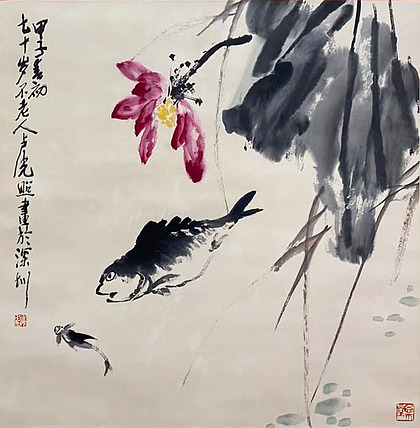 甲子春初
七十岁不老人卢光照畫於深圳